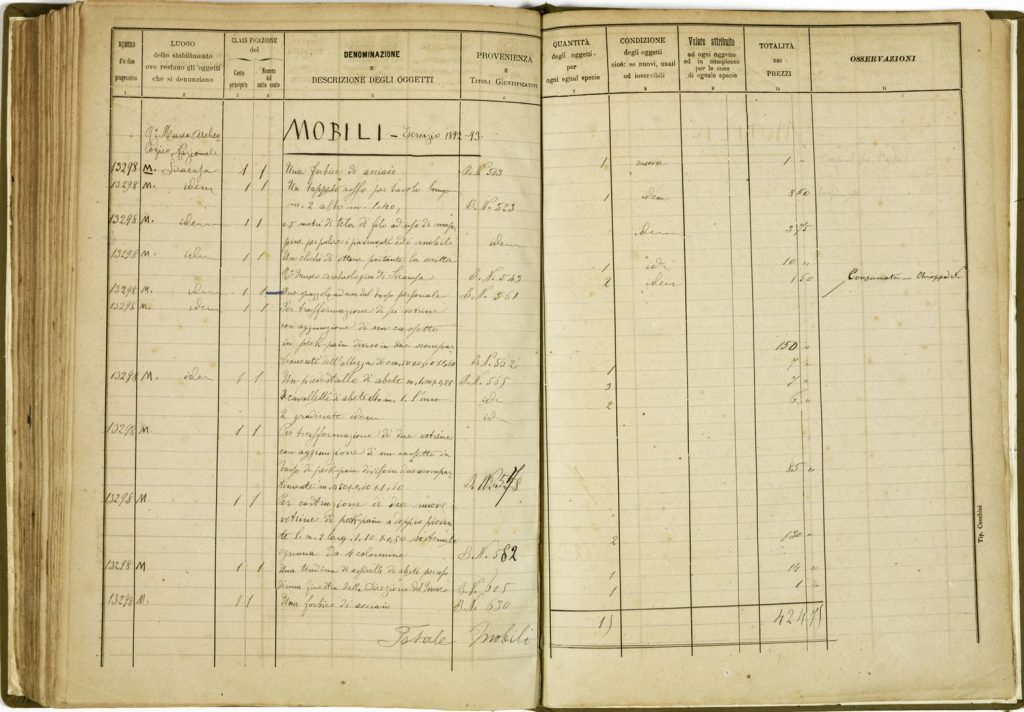 NUMERO d'ordine progressivo
LUOGO dello stabilimento ove restano gli oggetti che si denunziano
CLASSIFICAZIONE del
Conto principale
Numero del sotto conto
DENOMINAZIONE E DESCRIZIONE DEGLI OGGETTI
PROVENIENZA E TITOLI GIUSTIFICATIVI
QUANTITÀ degli oggetti per ogni egual specie
CONDIZIONE degli oggetti cioè: se nuovi, usati od inservibili
Valore attribuito ad ogni oggetto ed in complesso per le cose di eguale specie
TOTALITÀ DEI PREZZI
OSSERVAZIONI
1 2 3 4 5 6 7 8 9 10 11
MOBILI - Esercizio 1892-93
Ro. Museo Archeo
logico Nazionale
13298 M. Siracusa 1 1 Una forbice di acciaio B. N. 513 1 nuova 1 "
13298 M. idem 1 1 Un tappeto per tavolo lungo
m. 2 alto m. 1.40, B. N. 523 1 idem 8 50
13298 M. idem 1 1 metri di tela di filo ad uso di
per pulire i pavimenti ed i mobili idem idem 3 75
13298 M. idem 1 1 Un cliché di ottone portante la scritta
Ro. Museo Archeologico di Siracusa B. N. 543 1 idem 10 "
13298 M. idem 1 1 Due spazzole ad uso del basso personale B. N. 561 2 idem 1 50 Consumate
13298 M. idem 1 1 Per trasformazione di vetrine
con aggiunzione di un cassetto
in pich-pain diviso in due scompar
timenti dell'altezza B. N. 562 150 "
13298 M. idem 1 1 Un piedestallo di abete B. N. 565 1 7 "
3 cavalletti di abete alto m. 1. l'uno id 3 7 "
2 gradinate idem id 2 6 "
13298 M. 1 1 Per trasformazione di due vetrine
con aggiunzione di un cassetto in
di pich-pain diviso in due scompar
timenti B. N. 578 85 "
13298 M 1 1 Per costruzione di due nuove
vetrine di pich-pain a doppio pioven
te l. m. 2 larg. 1.10 x 0,50
ognuna da 4 colonnine B. N. 582 2 130 "
13298 M 1 1 Una tendina di di abete per
di una finestra della Direzione del Museo B. N. 605 1 14 "
13298 M. 1 1 Una forbice di acciaio B. N. 630 1 1 "
Totale Mobili 15 424 75
Tip. Cecchini